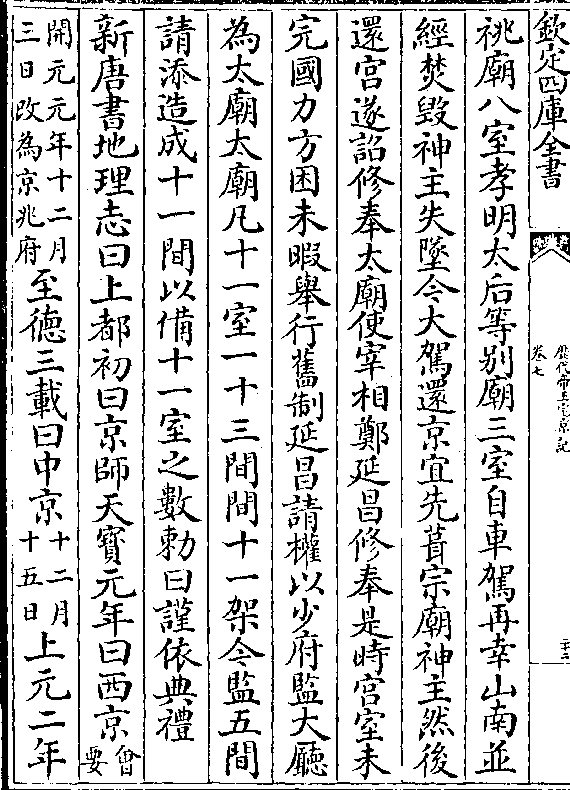 欽定四庫全書
歷代帝王宅京記
卷七
祧廟八室孝明太后等别廟三室自車駕再幸山南並
經焚毁神主失墜今大駕還京宜先葺宗廟神主然後
還宫遂詔修奉太廟使宰相鄭延昌修奉是時宫室未
完國力方困未暇舉行舊制延昌請權以少府監大廳
為太廟太廟凡十一室一十三間間十一架今監五間
請添造成十一間以備十一室之數勅曰謹依典禮
新唐書地理志曰上都初曰京師天寶元年曰西京會要
開元元年十二月三日改為京兆府至德三載曰中京十二月十五日上元二年